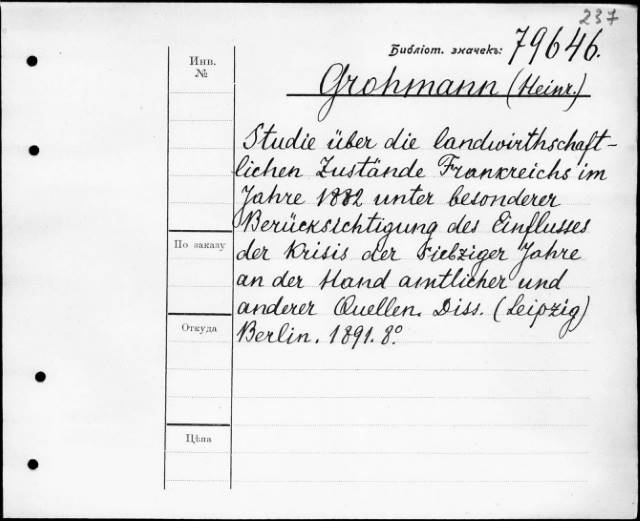 237
Библіот. значекъ: 79646.
Инв.
№
Grohmann (Heinr.)
Studie über die landwirthschaft-
lichen Zustände Frankreichs im
Jahre 1882 unter besonderer
Berücksichtigung des Einflusses
der Krisis der Siebziger Jahre
an der Hand amtlicher und
anderer Quellen. Diss. (Leipzig)
Berlin. 1891. 8°
По заказу
Откуда
Цѣна